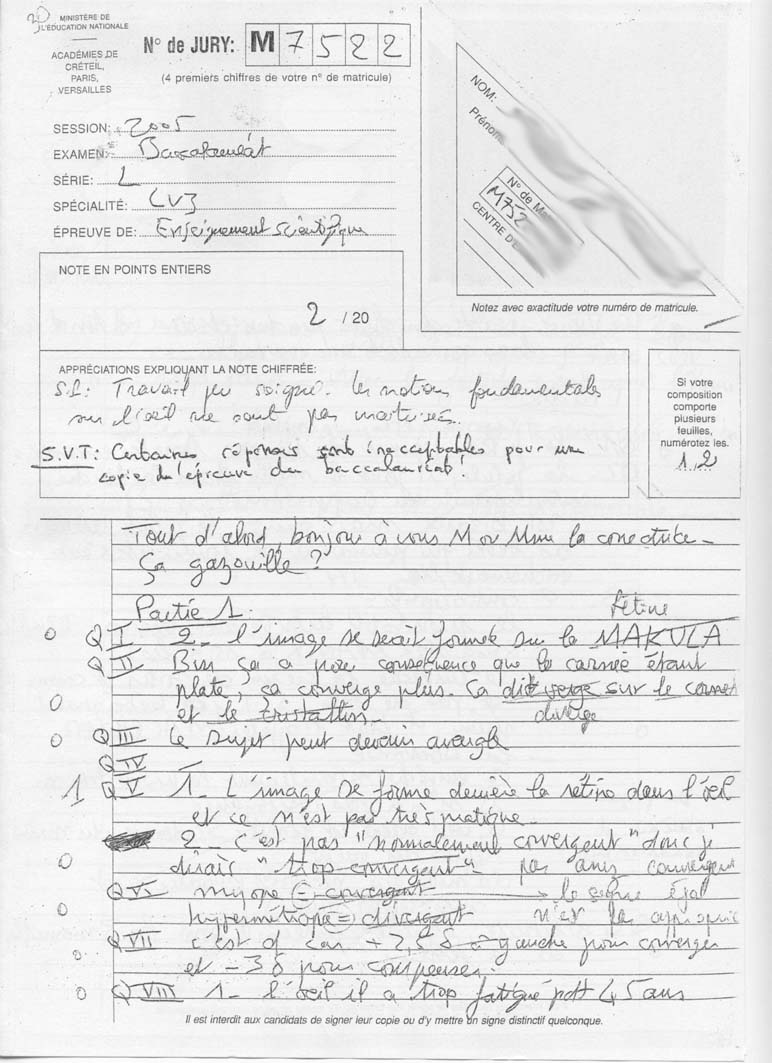 20
MINISTÈRE DE
L'ÉDUCATION NATIONALE
ACADÉMIES DE
CRÉTEIL,
PARIS,
VERSAILLES
N° de JURY: M 7 5 2 2
(4 premiers chiffres de votre n° de matricule)
SESSION: 2005
EXAMEN: Baccalauréat
SÉRIE: L
SPÉCIALITÉ: LV3
ÉPREUVE DE: Enseignement scientifique
NOM:
Prénom
N° de Ma
M752
CENTRE D'E
Notez avec exactitude votre numéro de matricule.
NOTE EN POINTS ENTIERS
2 / 20
APPRÉCIATIONS EXPLIQUANT LA NOTE CHIFFRÉE:
Travail peu soigné. les notions fondamentales
sur l'oeil ne sont pas maitrisées.
S.V.T: Certaines réponses sont inacceptables pour une
copie de l'épreuve du baccalauréat!
Si votre
composition
comporte
plusieurs
feuilles,
numérotez les.
1.2
Tout d'abord, bonjour à vous M ou Mme la correctrice -
Ça gazouille ?
Partie 1:
rétine
0 Q I 2 - l'image se serait formée sur la MAKULA
Q II Bin ça a pour conséquence que la carnée étant
0 plate, sa converge plus. Ca diverge sur le cornet
et le cristallin. diverge
0 Q III le sujet peut devenir aveugle
Q IV
1 Q V 1 - L'image se forme derrière la rétine dans l'oeil
et ce n'est pas très pratique.
2 - c'est pas "normalement convergent" donc je
0 dirais "trop convergent" pas assez convergent
Q VI myope = convergent le signe égal
0 hypermétrope = divergent n'est pas approprié
Q VII c'est d'cas + 2,5 δ à gauche pour converger
0 et - 3 δ pour compenser.
0 Q VIII 1 - l'oeil il a trop fatigué pdt 45 ans
Il est interdit aux candidats de signer leur copie ou d'y mettre un signe distinctif quelconque.